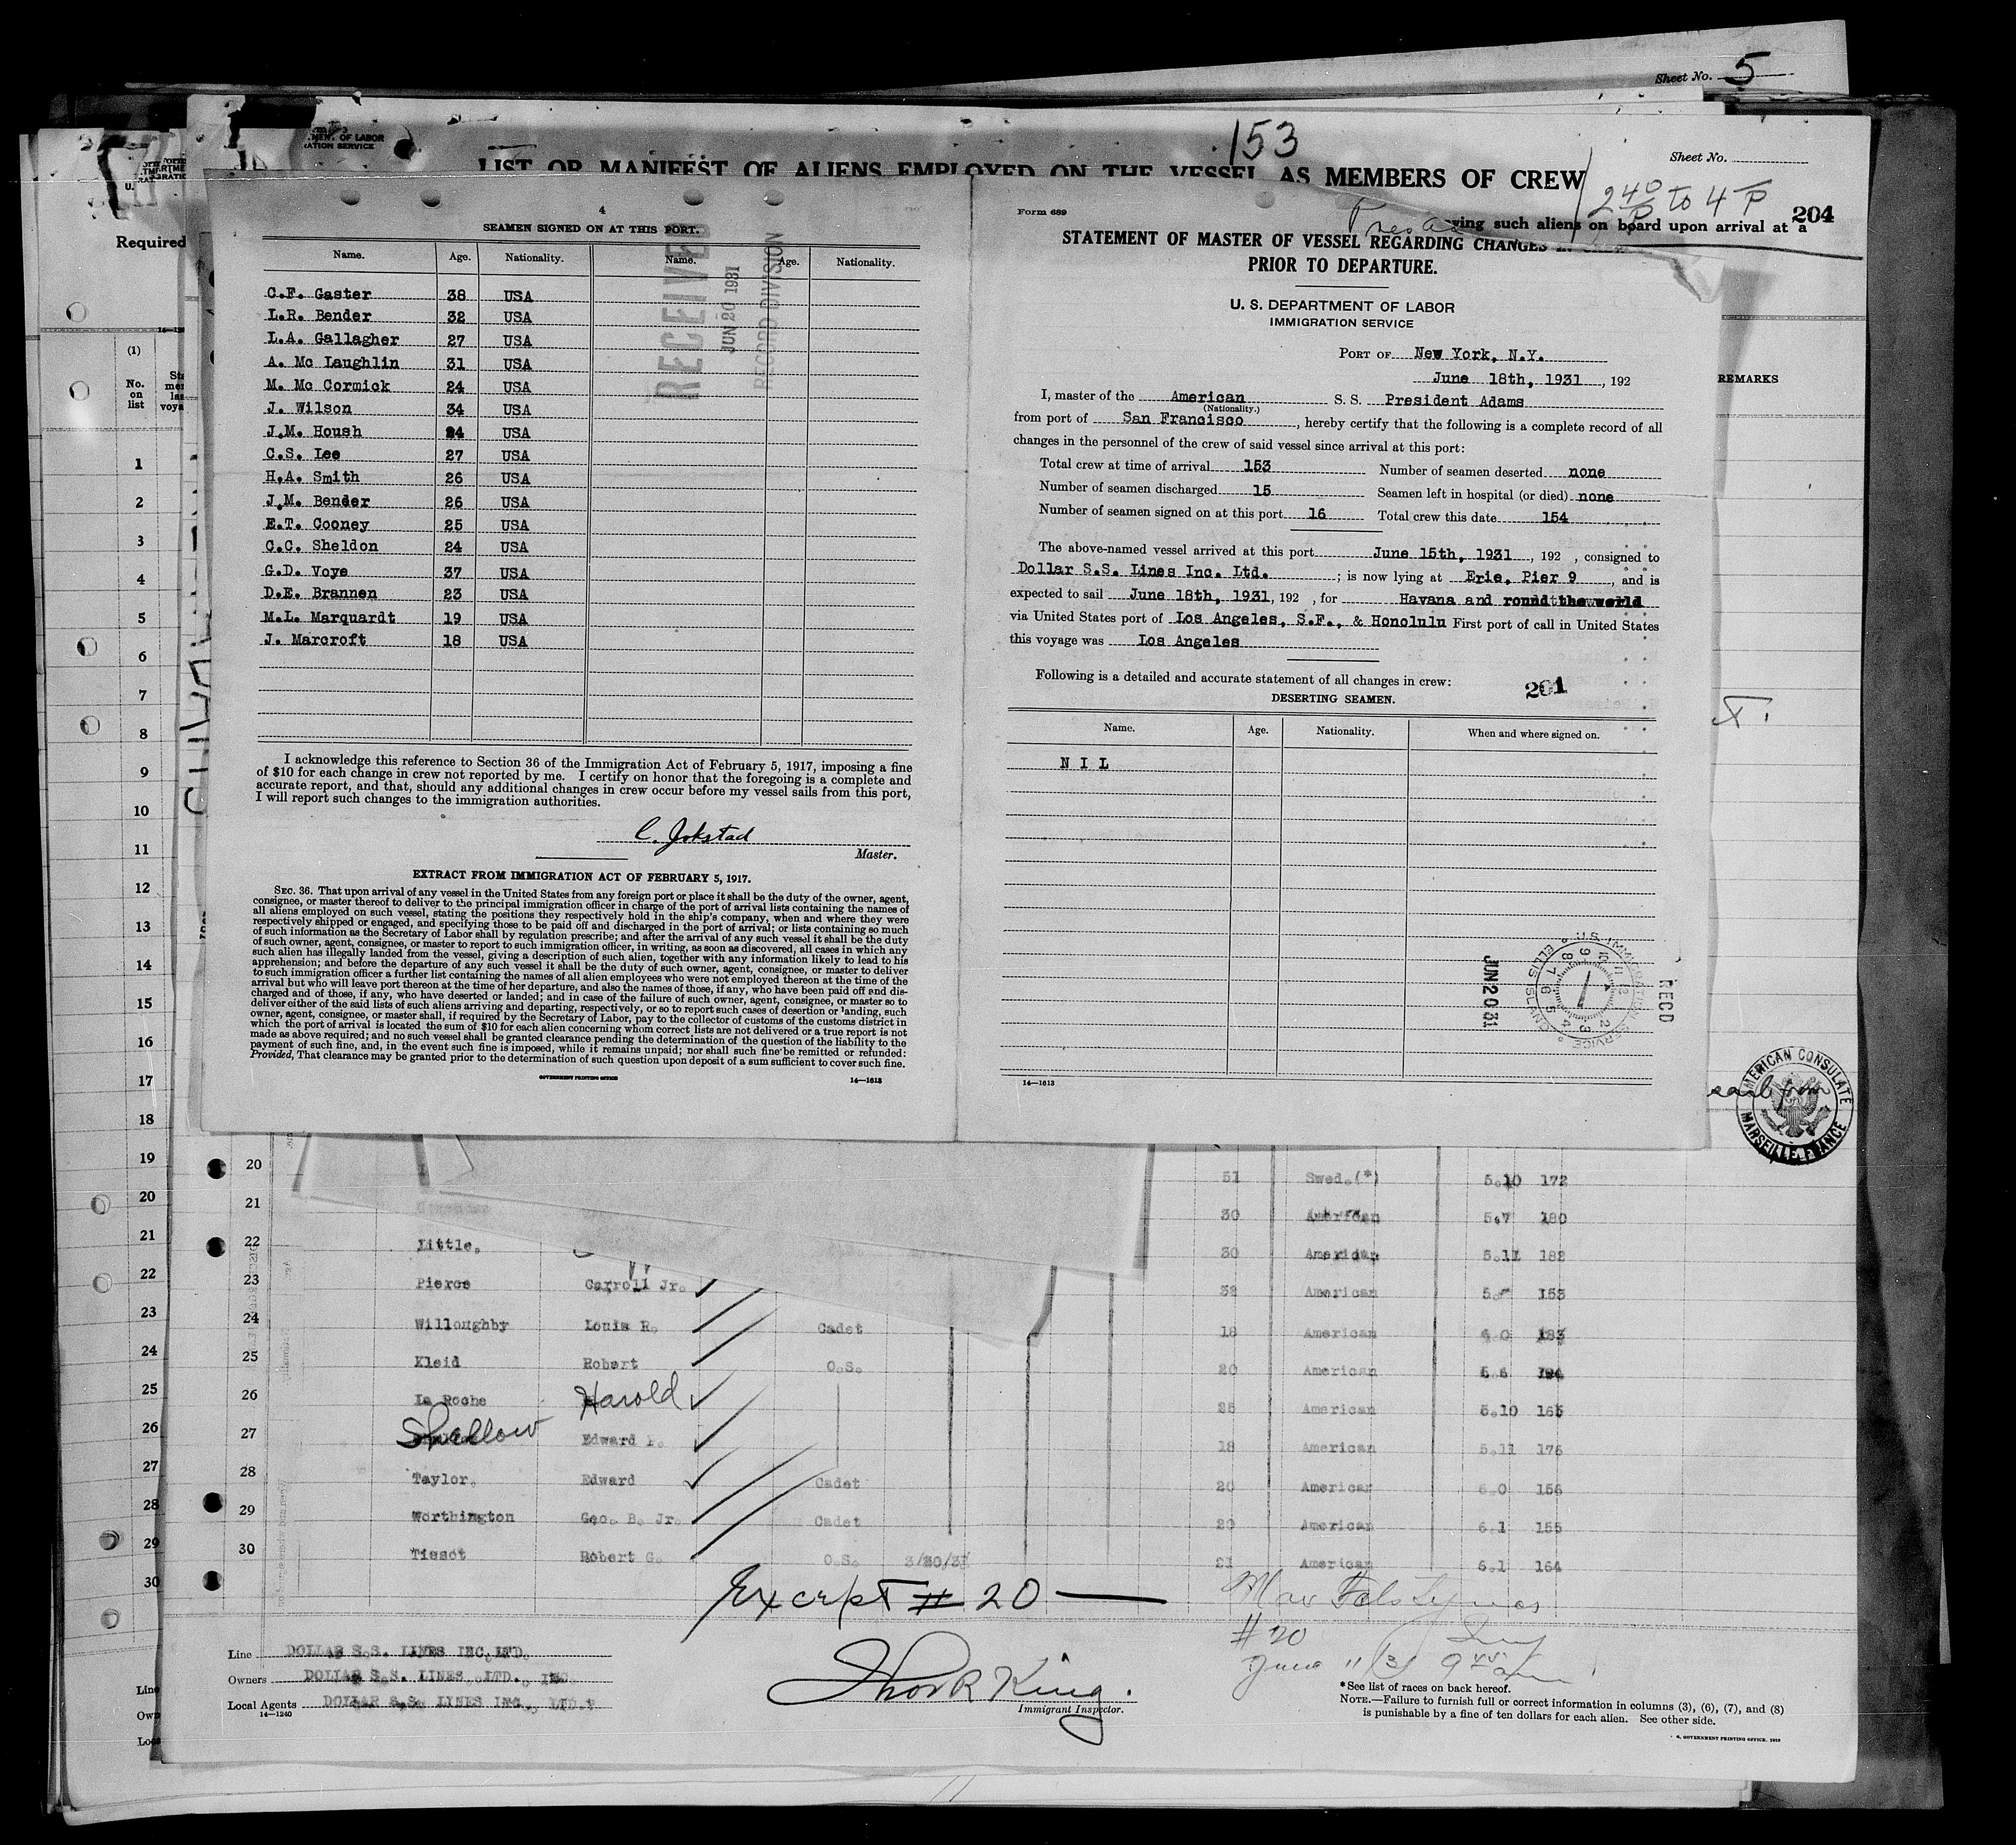 Sheet No. 5
153
Sheet No.
LIST OR MANIFEST OF ALIENS EMPLOYED ON THE VESSEL AS MEMBERS OF CREW
2 40/P to 4 P
204
ving such aliens on board upon arrival at a
Required
(1)
No. on list
REMARKS
4
SEAMEN SIGNED ON AT THIS PORT.
Name. Age. Nationality. Name. Age. Nationality.
RECEIVED
JUN 20 1931
RECORD DIVISION
C.F. Gaster 38 USA
L.R. Bender 32 USA
L.A. Gallagher 27 USA
A. Mc Laughlin 31 USA
M. Mc Cormick 24 USA
J. Wilson 34 USA
J.M. Housh 24 USA
C.S. Lee 27 USA
H.A. Smith 26 USA
J.M. Bender 26 USA
E.T. Cooney 25 USA
C.C. Sheldon 24 USA
G.D. Voye 37 USA
D.E. Brannen 23 USA
M.L. Marquardt 19 USA
J. Marcroft 18 USA
I acknowledge this reference to Section 36 of the Immigration Act of February 5, 1917, imposing a fine
of $10 for each change in crew not reported by me. I certify on honor that the foregoing is a complete and
accurate report, and that, should any additional changes in crew occur before my vessel sails from this port,
I will report such changes to the immigration authorities.
C. Jokstad
Master.
EXTRACT FROM IMMIGRATION ACT OF FEBRUARY 5, 1917.
SEC. 36. That upon arrival of any vessel in the United States from any foreign port or place it shall be the duty of the owner, agent,
consignee, or master thereof to deliver to the principal immigration officer in charge of the port of arrival lists containing the names of
all aliens employed on such vessel, stating the positions they respectively hold in the ship's company, when and where they were
respectively shipped or engaged, and specifying those to be paid off and discharged in the port of arrival; or lists containing so much
of such information as the Secretary of Labor shall by regulation prescribe; and after the arrival of any such vessel it shall be the duty
of such owner, agent, consignee, or master to report to such immigration officer, in writing, as soon as discovered, all cases in which any
such alien has illegally landed from the vessel, giving a description of such alien, together with any information likely to lead to his
apprehension; and before the departure of any such vessel it shall be the duty of such owner, agent, consignee, or master to deliver
to such immigration officer a further list containing the names of all alien employees who were not employed thereon at the time of the
arrival but who will leave port thereon at the time of her departure, and also the names of those, if any, who have been paid off and dis-
charged and of those, if any, who have deserted or landed; and in case of the failure of such owner, agent, consignee, or master so to
deliver either of the said lists of such aliens arriving and departing, respectively, or so to report such cases of desertion or landing, such
owner, agent, consignee, or master shall, if required by the Secretary of Labor, pay to the collector of customs of the customs district in
which the port of arrival is located the sum of $10 for each alien concerning whom correct lists are not delivered or a true report is not
made as above required; and no such vessel shall be granted clearance pending the determination of the question of the liability to the
payment of such fine, and, in the event such fine is imposed, while it remains unpaid; nor shall such fine be remitted or refunded:
Provided, That clearance may be granted prior to the determination of such question upon deposit of a sum sufficient to cover such fine.
GOVERNMENT PRINTING OFFICE 14—1613
Form 689
STATEMENT OF MASTER OF VESSEL REGARDING CHANGES
PRIOR TO DEPARTURE.
U. S. DEPARTMENT OF LABOR
IMMIGRATION SERVICE
PORT OF New York, N.Y.
June 18th, 1931, 192
I, master of the American S. S. President Adams
(Nationality.)
from port of San Francisco, hereby certify that the following is a complete record of all
changes in the personnel of the crew of said vessel since arrival at this port:
Total crew at time of arrival 153 Number of seamen deserted none
Number of seamen discharged 15 Seamen left in hospital (or died) none
Number of seamen signed on at this port 16 Total crew this date 154
The above-named vessel arrived at this port June 15th, 1931, 192 , consigned to
Dollar S.S. Lines Inc. Ltd. ; is now lying at Erie, Pier 9, and is
expected to sail June 18th, 1931, 192 , for Havana and round the world
via United States port of Los Angeles, S.F., & Honolulu First port of call in United States
this voyage was Los Angeles
Following is a detailed and accurate statement of all changes in crew:
201
DESERTING SEAMEN.
Name. Age. Nationality. When and where signed on.
N I L
U.S. IMMIGRATION SERVICE ELLIS ISLAND, N.Y.
JUN 20 31
RECD
14—1613
AMERICAN CONSULATE
MARSEILLE, FRANCE
20 51 Swed.(*) 5.10 172
21 30 American 5.7 180
22 Little. 30 American 5.11 182
23 Pierce Carroll Jr. 32 American 153
24 Willoughby Louis R. Cadet 18 American 6 0 183
25 Kleid Robert O.S. 20 American 5.6
26 La Roche Harold 25 American 5.10 165
27 Shallow Edward 18 American 5.11 175
28 Taylor. Edward Cadet 20 American 6.0 156
29 Worthington Geo. B. Jr. Cadet 20 American 6.1 155
30 Tissot Robert G. O.S. 3/30/31 21 American 6.1 164
Except # 20 —
# 20
June 11/31 9 45 am
Line DOLLAR S.S. LINES INC. LTD.
Owners DOLLAR S.S. LINES LTD., INC.
Local Agents DOLLAR S.S. LINES INC., LTD.
14—1240
King.
Immigrant Inspector.
*See list of races on back hereof.
NOTE.—Failure to furnish full or correct information in columns (3), (6), (7), and (8)
is punishable by a fine of ten dollars for each alien. See other side.